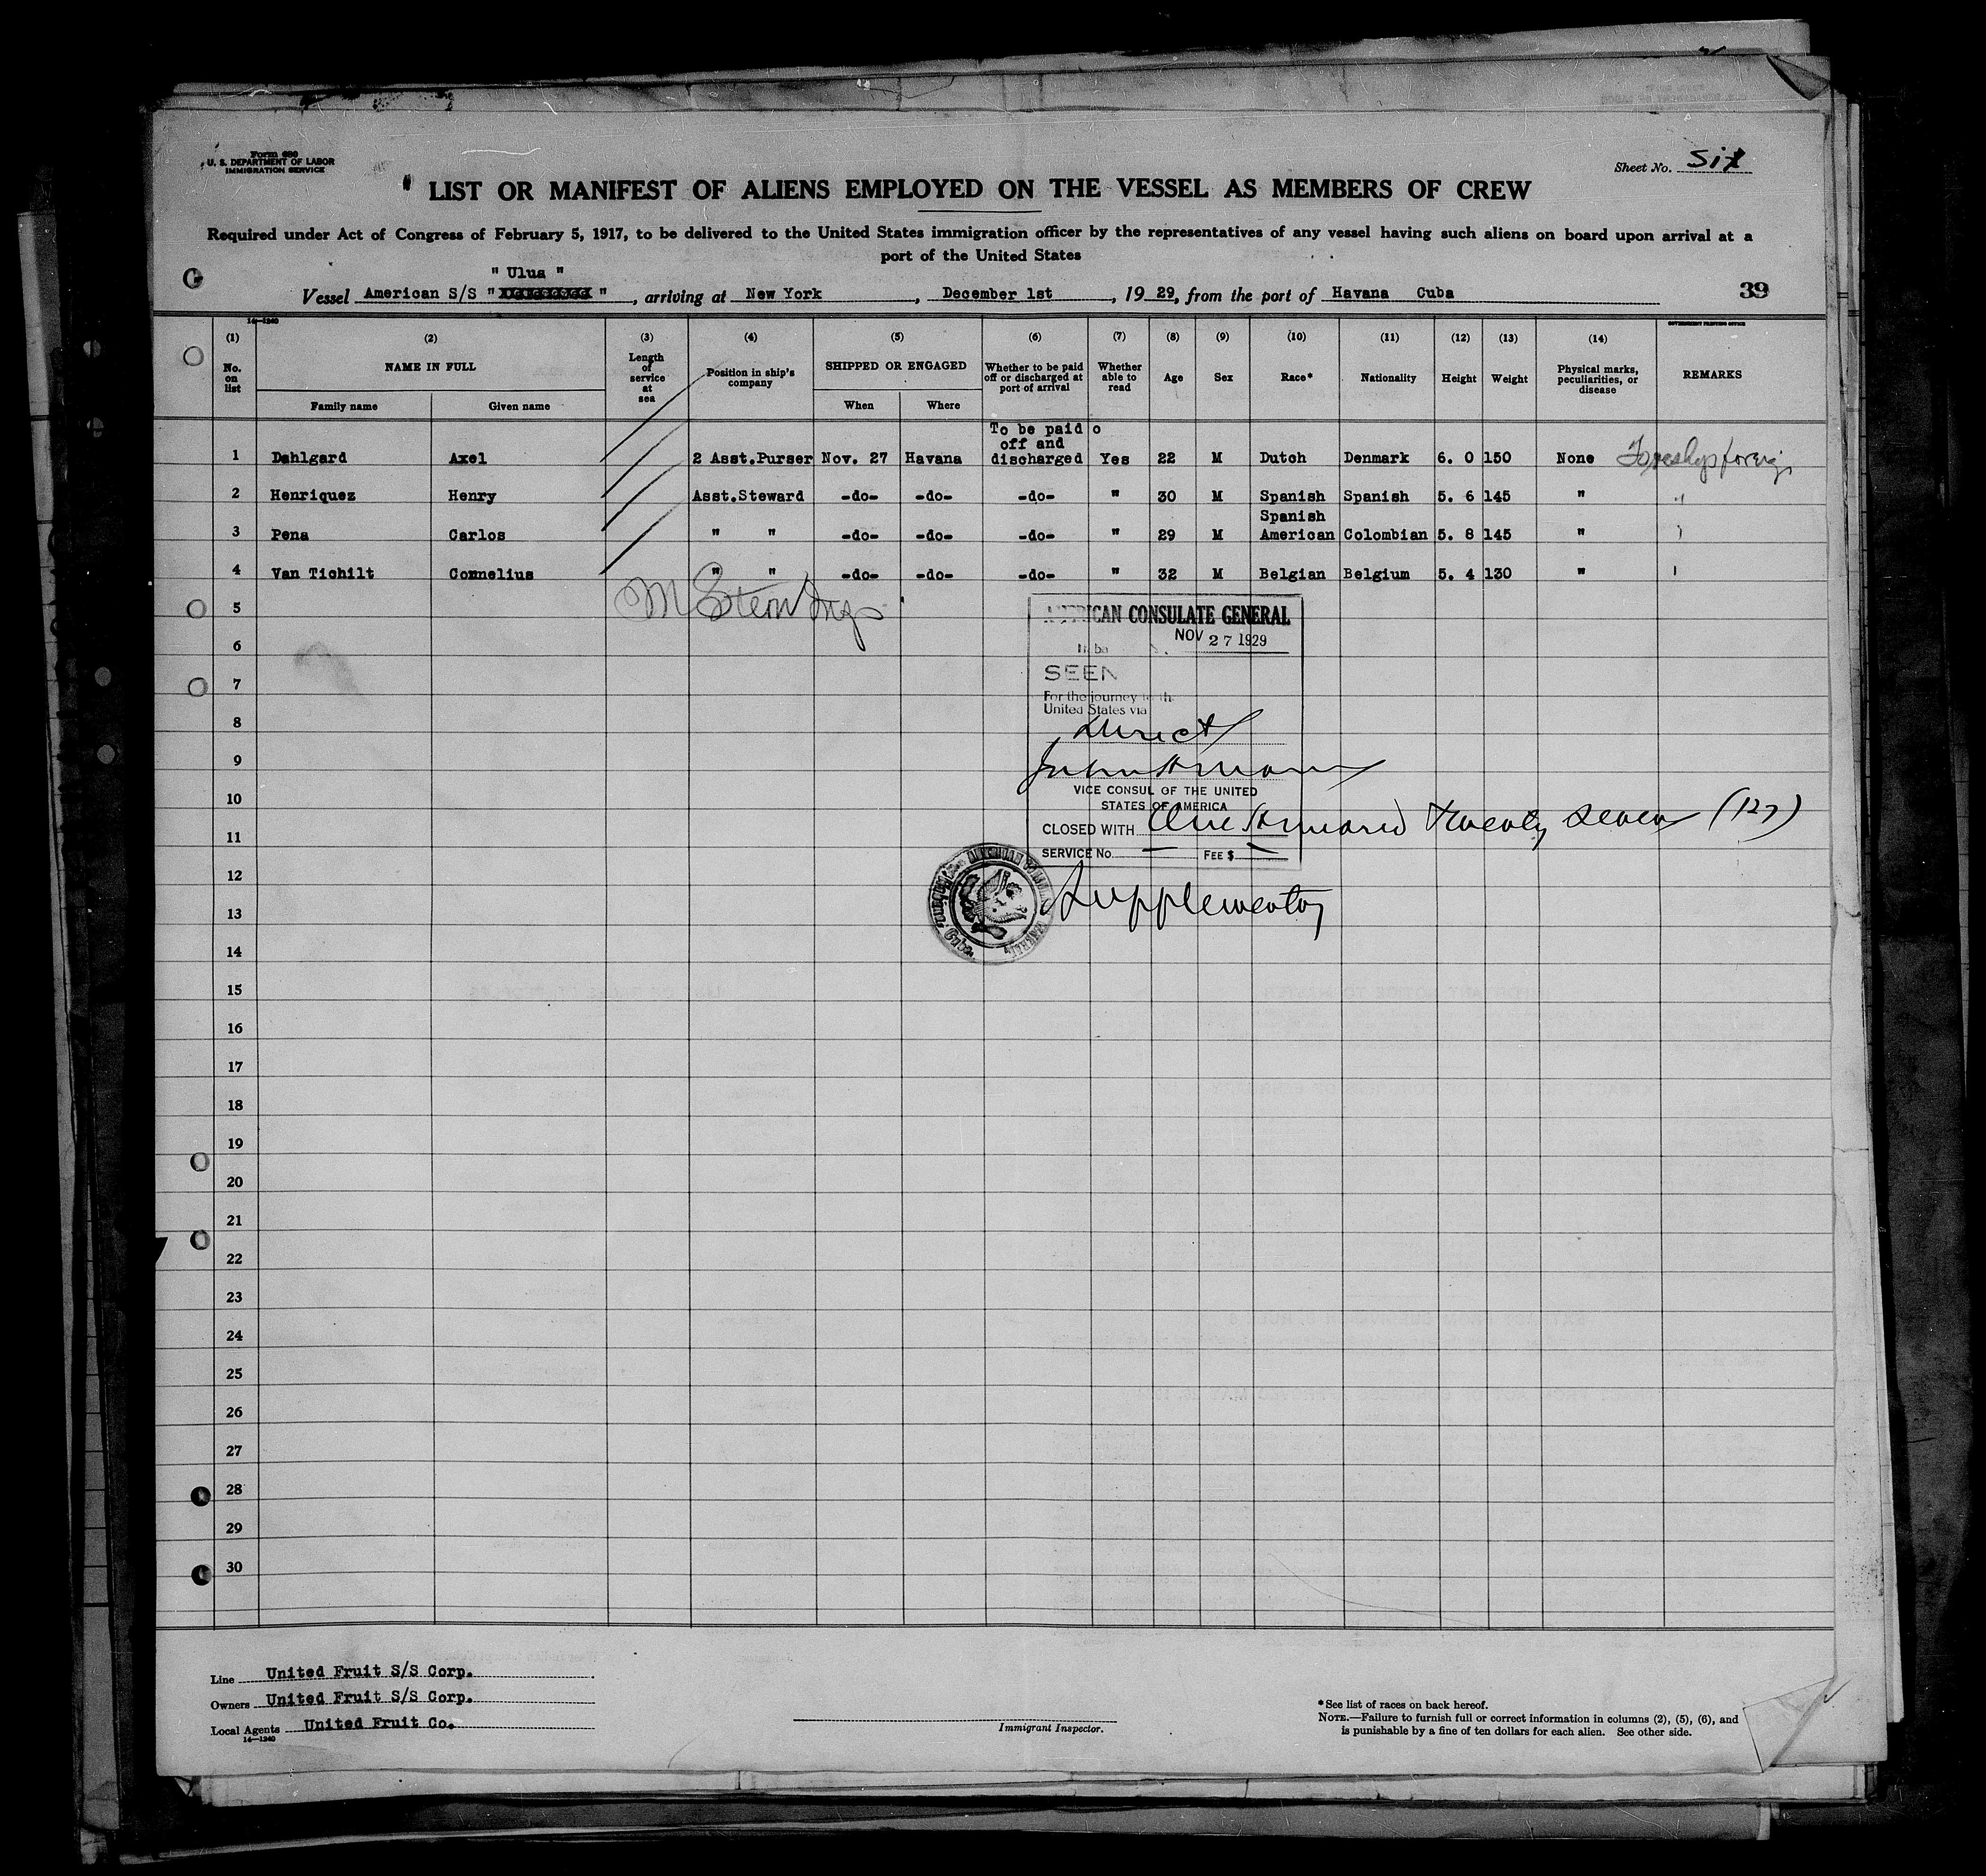 Form 680
U. S. DEPARTMENT OF LABOR
IMMIGRATION SERVICE
Sheet No. Six
LIST OR MANIFEST OF ALIENS EMPLOYED ON THE VESSEL AS MEMBERS OF CREW
Required under Act of Congress of February 5, 1917, to be delivered to the United States immigration officer by the representatives of any vessel having such aliens on board upon arrival at a
port of the United States
" Ulua "
Vessel American S/S " ", arriving at New York, December 1st, 1929, from the port of Havana Cuba
39
14—1240
GOVERNMENT PRINTING OFFICE
(1) (2) (3) (4) (5) (6) (7) (8) (9) (10) (11) (12) (13) (14)
No. on list NAME IN FULL Length of service at sea Position in ship's company SHIPPED OR ENGAGED Whether to be paid off or discharged at port of arrival Whether able to read Age Sex Race* Nationality Height Weight Physical marks, peculiarities, or disease REMARKS
Family name Given name When Where
To be paid o
off and
1 Dahlgard Axel 2 Asst.Purser Nov. 27 Havana discharged Yes 22 M Dutch Denmark 6. 0 150 None
2 Henriquez Henry Asst.Steward -do- -do- -do- " 30 M Spanish Spanish 5. 6 145 " "
Spanish
3 Pena Carlos " " -do- -do- -do- " 29 M American Colombian 5. 8 145 "
4 Van Tichilt Cornelius " " -do- -do- -do- " 32 M Belgian Belgium 5. 4 130 "
5
M Stern Insp
AMERICAN CONSULATE GENERAL
NOV 27 1929
6
SEEN
7
For the journey to the
United States via
8
Direct
9
VICE CONSUL OF THE UNITED
10
STATES OF AMERICA
CLOSED WITH One Hundred twenty seven (127)
11
SERVICE No. FEE $
12
Supplementary
13
14
15
16
17
18
19
20
21
22
23
24
25
26
27
28
29
30
Line United Fruit S/S Corp.
Owners United Fruit S/S Corp.
Local Agents United Fruit Co.
14—1240
Immigrant Inspector.
*See list of races on back hereof.
NOTE.—Failure to furnish full or correct information in columns (2), (5), (6), and
is punishable by a fine of ten dollars for each alien. See other side.